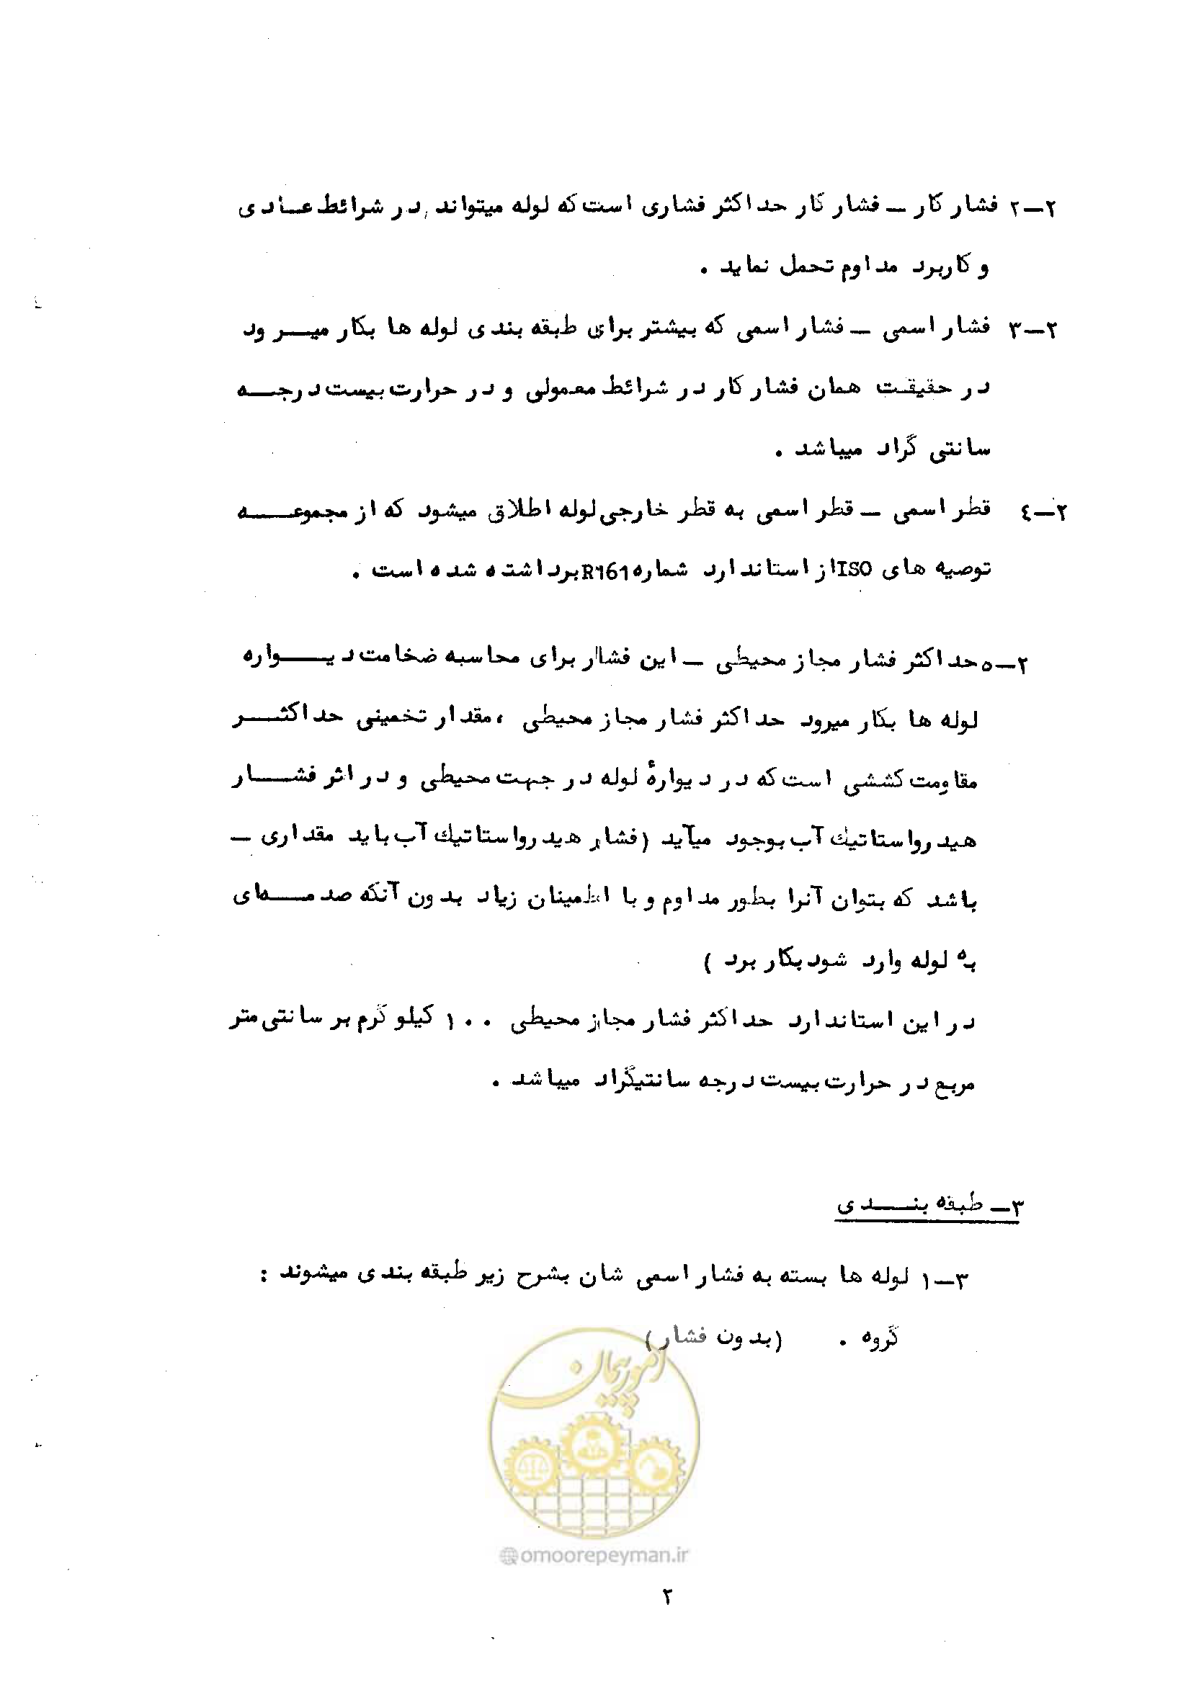 ۲-۲ فشار کار ـ فشار کار حداکثر فشاری است که لوله میتواند در شرائط عادی
و کاربرد مداوم تحمل نماید .
۲-۳ فشار اسمی ـ فشار اسمی که بیشتر برای طبقه بندی لوله ها بکار میرود
در حقیقت همان فشار کار در شرائط معمولی و در حرارت بیست درجه
سانتی گراد میباشد .
۲-٤ قطر اسمی ـ قطر اسمی به قطر خارجی لوله اطلاق میشود که از مجموعه
توصیه های ISO از استاندارد شماره R161 برداشته شده است .
۲-۵ حداکثر فشار مجاز محیطی ـ این فشار برای محاسبه ضخامت دیواره
لوله ها بکار میرود حداکثر فشار مجاز محیطی ، مقدار تخمینی حداکثر
مقاومت کششی است که در دیوارهٔ لوله در جهت محیطی و در اثر فشار
هیدرواستاتیک آب بوجود میآید (فشار هیدرواستاتیک آب باید مقداری ـ
باشد که بتوان آنرا بطور مداوم و با اطمینان زیاد بدون آنکه صدمه‌ای
به لوله وارد شود بکار برد )
در این استاندارد حداکثر فشار مجاز محیطی ۱۰۰ کیلو گرم بر سانتی متر
مربع در حرارت بیست درجه سانتیگراد میباشد .
۳ـ طبقه بندی
۳-۱ لوله ها بسته به فشار اسمی شان بشرح زیر طبقه بندی میشوند :
گروه ۰ (بدون فشار)
امور پیمان
@omoorepeyman.ir
۲